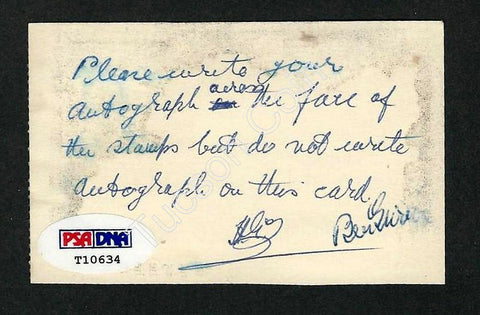 Please write your
autograph across the face of
the stamps but do not write
autograph on this card.
Ben Guri
PSA DNA
T10634